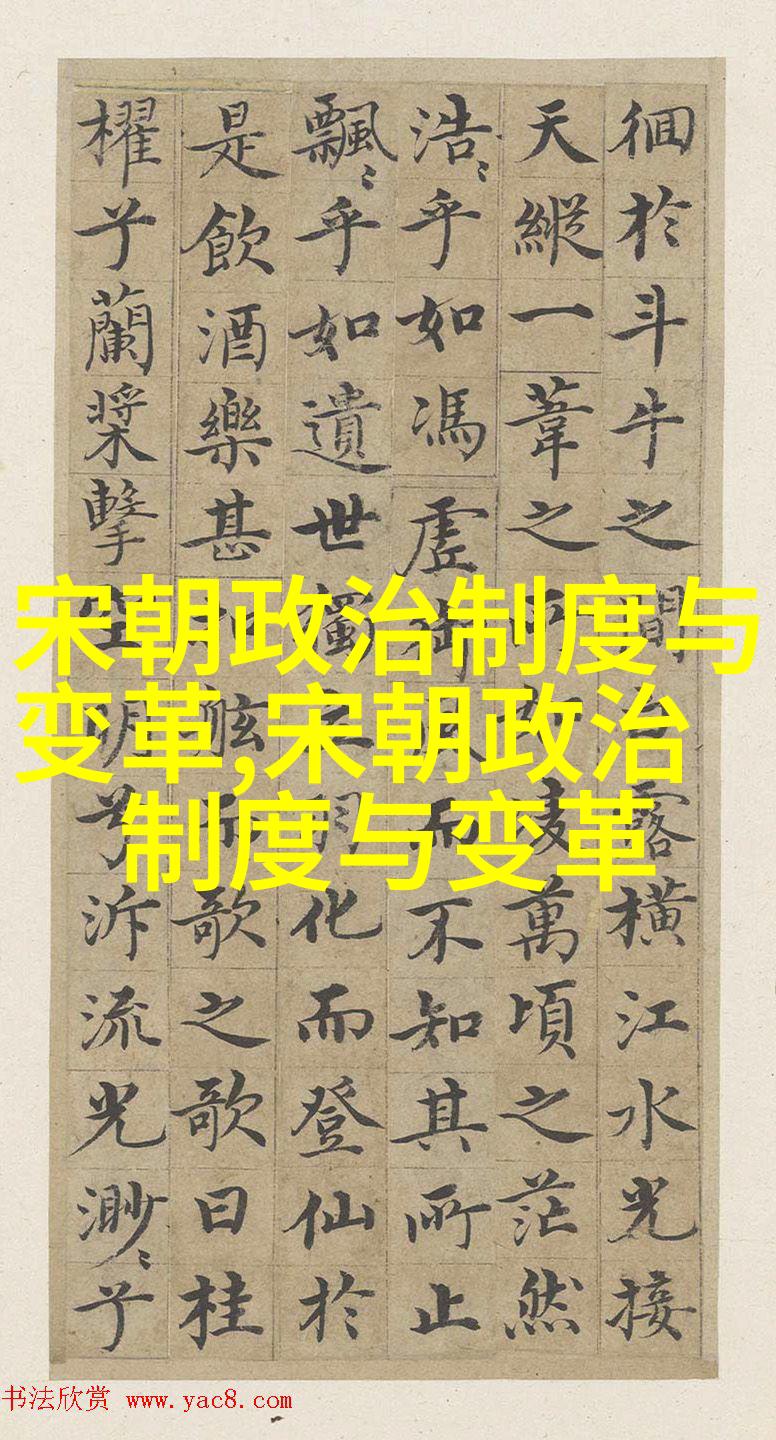 徊於斗牛之間露橫江水光接
天縱一葦之所如凌萬頃之茫然
浩〻乎如馮虛御風而不知其所止
飄〻乎如遺世獨羽化而登仙於
是飲酒樂甚扣舷而歌之歌曰桂
櫂兮蘭槳擊空明兮泝流光渺〻兮
宋朝政治制度与
变革,宋朝政治
制度与变革
书法欣赏 www.yac8.com